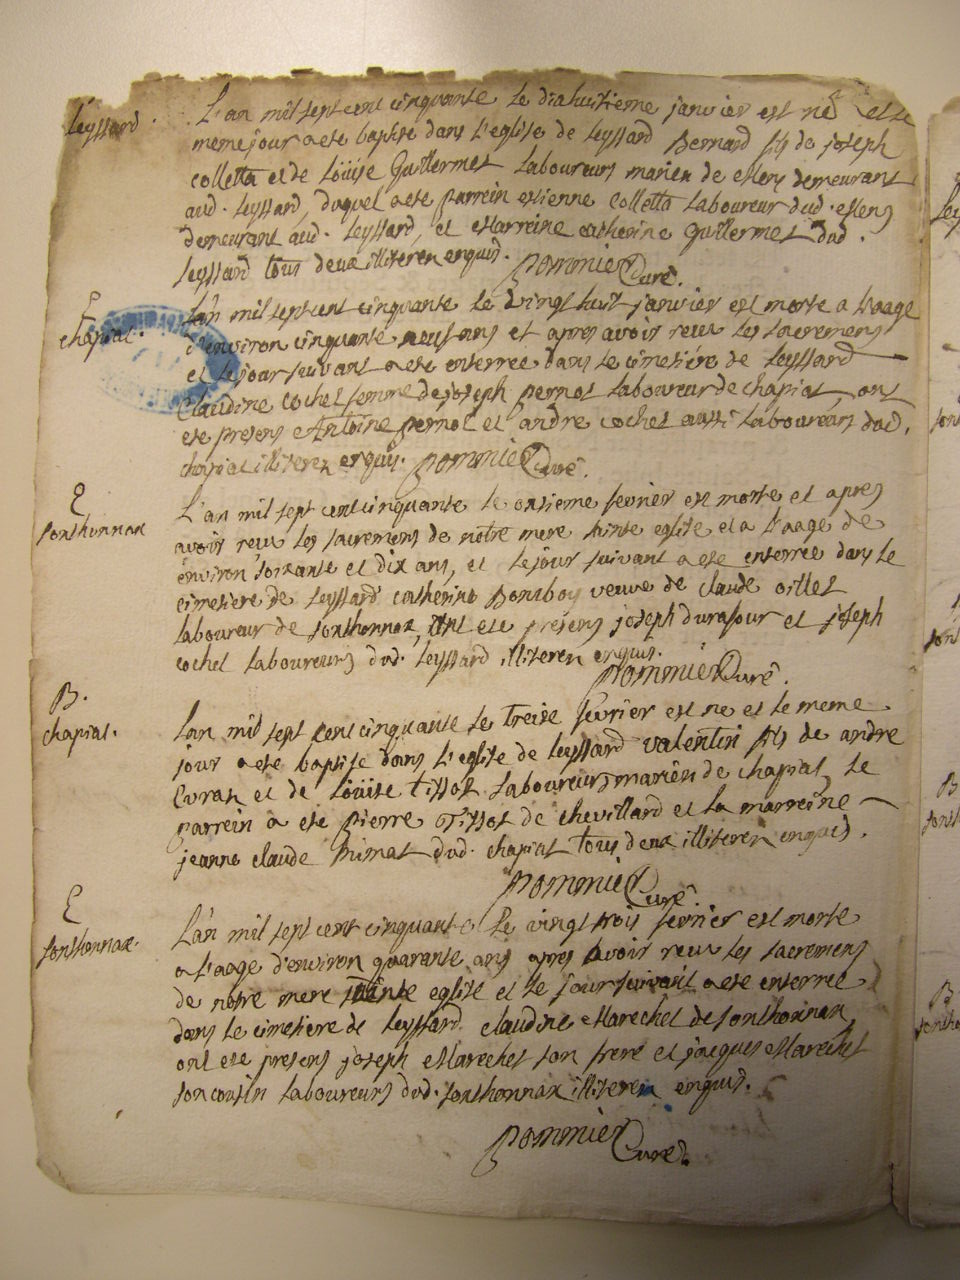 Leyssard.
L'an mil sept cent cinquante le dixhuitieme janvier est né et le
meme jour a eté baptisé dans l'eglise de Leyssard Bernard fils de joseph
colletta et de Loüise Guillermet Laboureurs mariéz de demeurant
aud. Leyssard, duquel a eté parrein estienne colletta Laboureur dud.
demeurant aud. Leyssard, et Marreine catherine Guillermet dud.
Leyssard tous deux illiteréz enquis. Pommier Curé.
E
chapiat.
L'an mil sept cent cinquante le vingt huit janvier est morte a l'aage
d'environ cinquante neuf ans et apres avoir receu les sacremens
et le jour suivant a eté enterrée dans le cimetiére de Leyssard
Claudine cochet femme de joseph pernot Laboureur de chapiat, ont
eté presens Antoine pernot et andre cochet aussi Laboureurs dud.
chapiat illiteréz enquis. Pommier Curé.
E
sonthonnax
L'an mil sept cent cinquante le onsieme fevrier est morte et apres
avoir receu les sacremens de notre mere sainte eglise et a l'aage de
environ soixante et dix ans, et le jour suivant a eté enterrée dans le
cimetiere de Leyssard catherine veuve de claude
laboureur de sonthonnax, ont eté présens joseph et joseph
cochet Laboureurs dud. Leyssard illiteréz enquis.
Pommier Curé.
B.
chapiat.
L'an mil sept cent cinquante le treise fevrier est né et le meme
jour a eté baptisé dans l'eglise de Leyssard valentin fils de andre
Evrax et de Loüise tissot Laboureurs mariéz de chapiat, le
parrein a eté pierre Tissot de chevillard et la marreine
jeanne claude dud. chapiat tous deux illiteréz enquis.
Pommier Curé.
E
sonthonnax.
L'an mil sept cent cinquante Le vingt trois fevrier est morte
a l'aage d'environ quarante ans apres avoir receu les sacremens
de notre mere sainte eglise et le jour suivant a eté enterrée
dans le cimetiere de Leyssard claudine Marechet de sonthonnax,
ont eté presens joseph Marechet son frere et jacques Marechet
son cousin Laboureurs dud. sonthonnax illiteréz enquis.
Pommier
Curé.